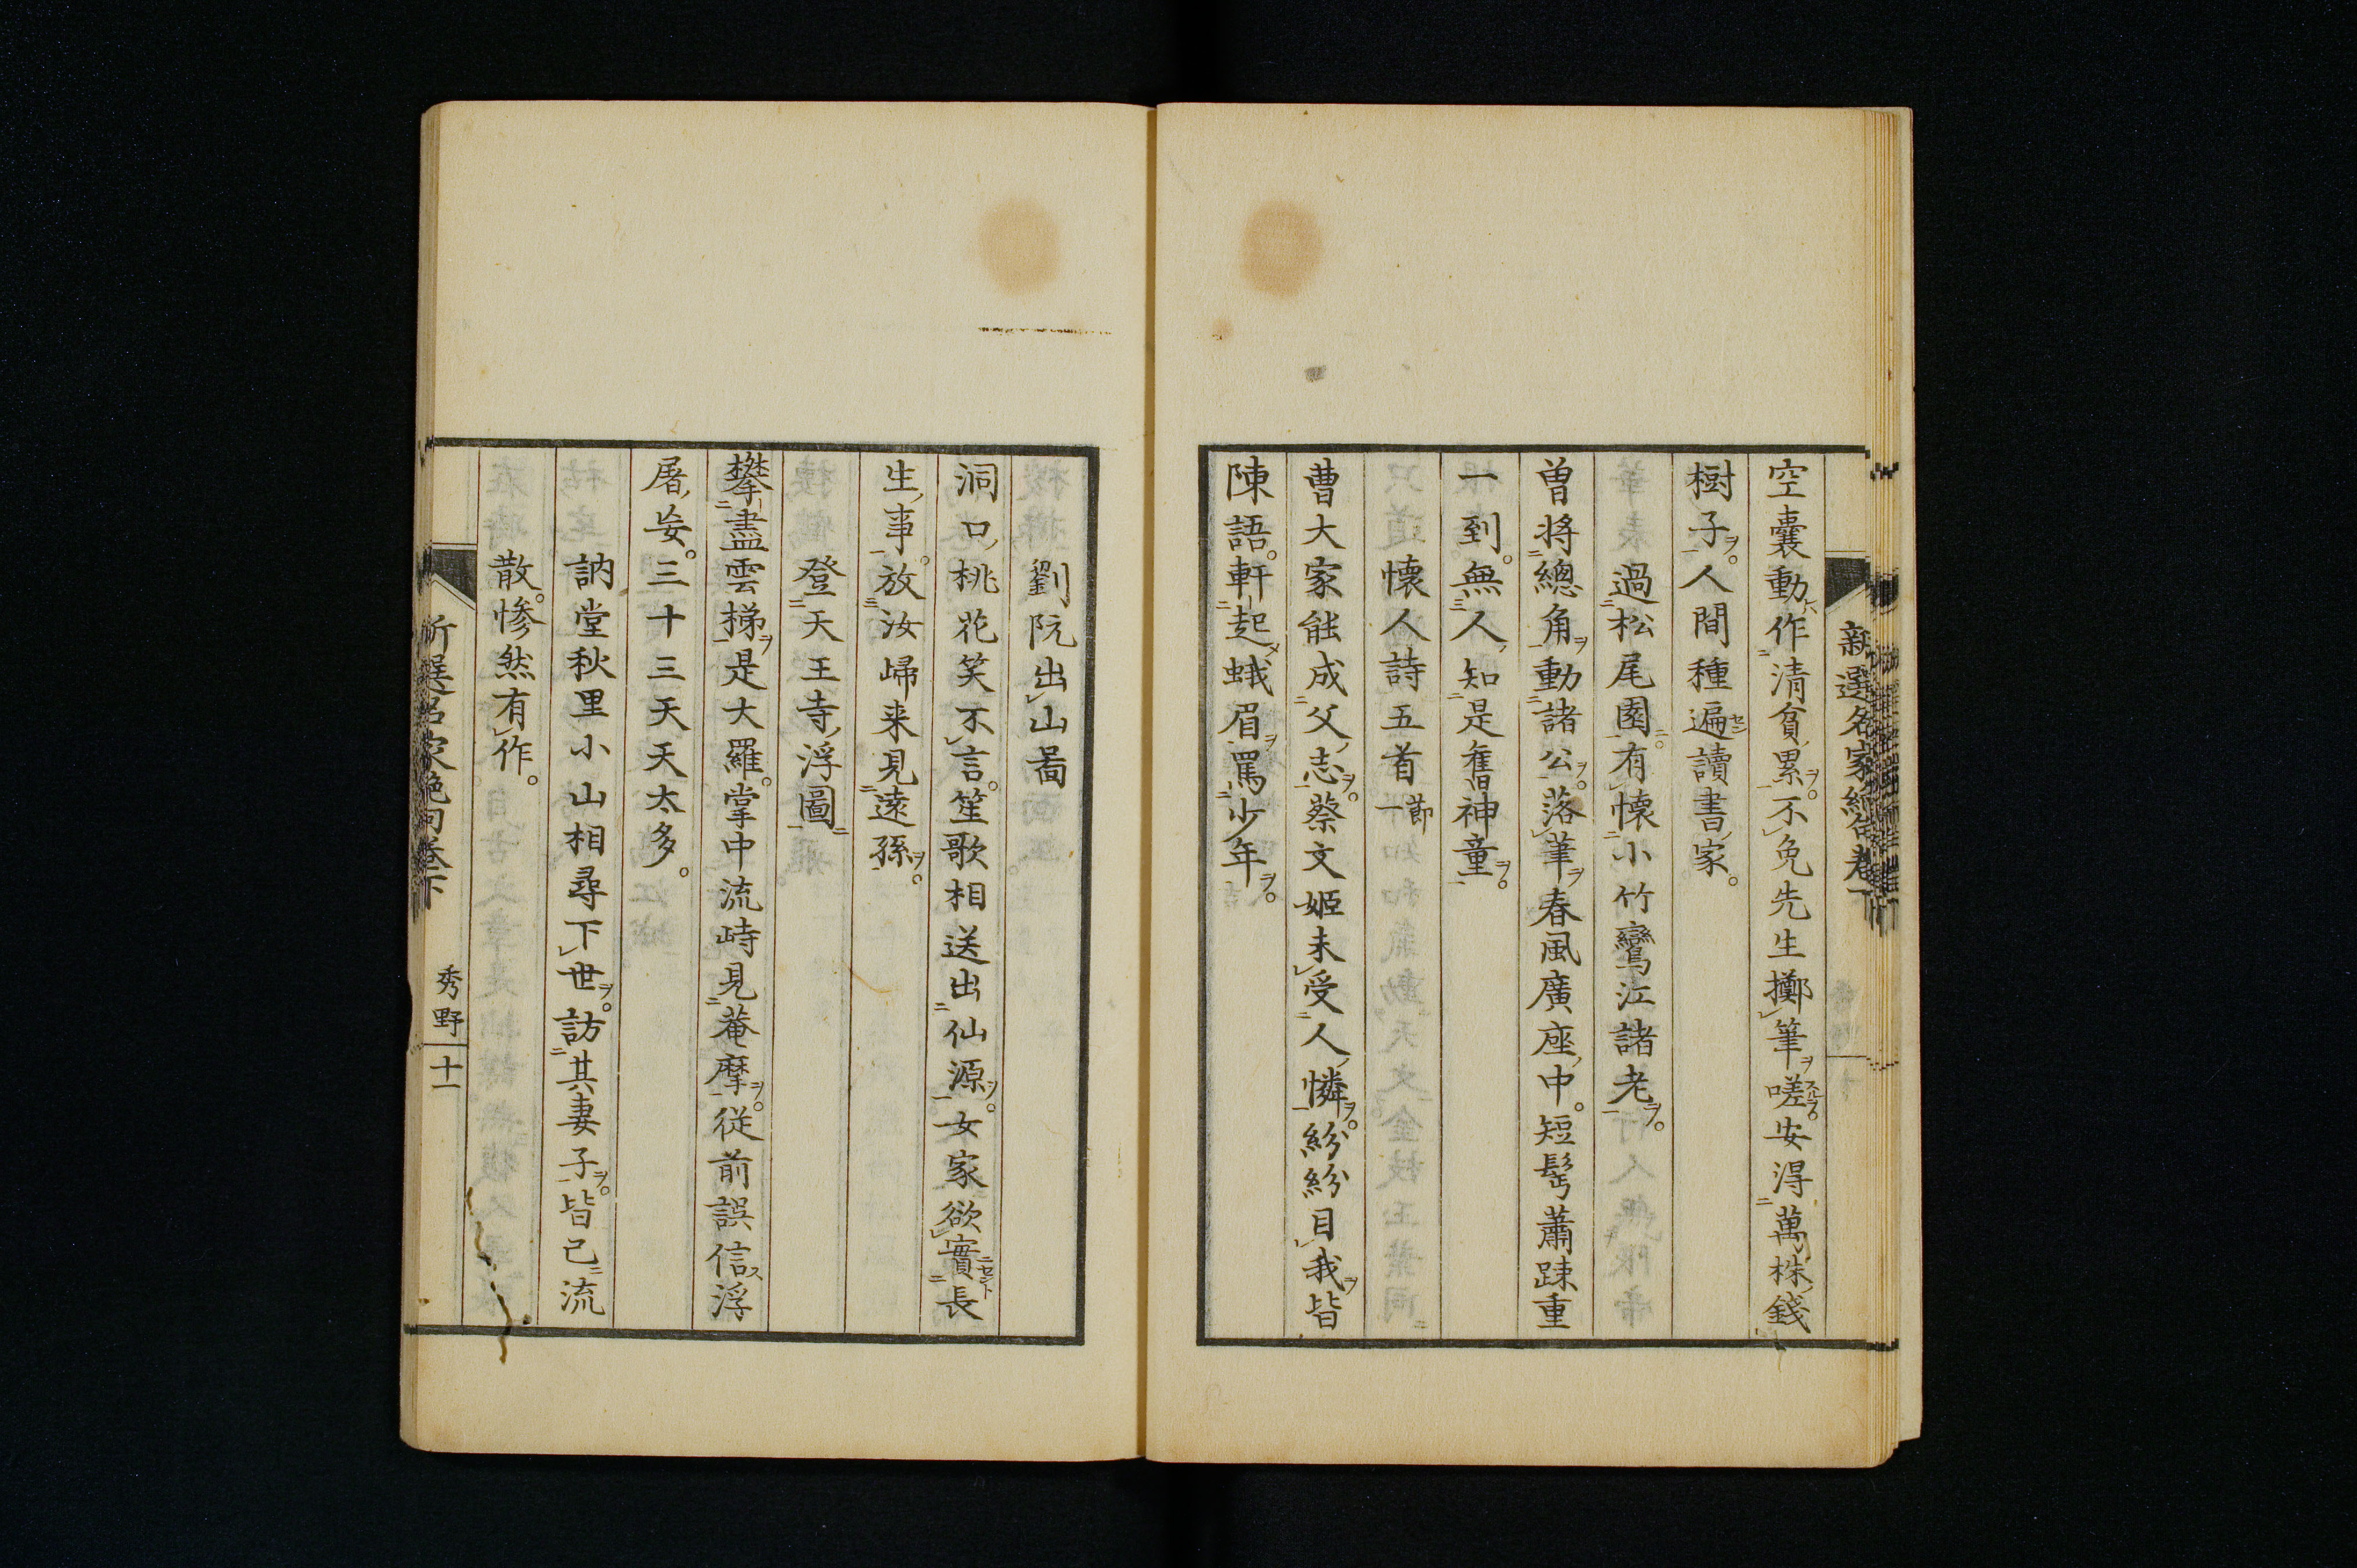 新選名家絶句卷下
空嚢動作清貧累。不免先生擲筆嗟。安得萬株錢
樹子。人間種遍讀書家。
過松尾園。有懐小竹鸞江諸老。
曽将總角動諸公。落筆春風廣座中。短髩蕭踈重
一到。無人知是舊神童。
懐人詩五首一節
曹大家能成父志。蔡文姫未受人憐。紛紛目我皆
陳語。軒起蛾眉罵少年。
劉阮出山啚
洞口桃花笑不言。笙歌相送出仙源。女家欲實長
生事。放汝歸来見遠孫。
登天王寺浮圖
攀盡雲梯是大羅。掌中流峙見菴摩。從前誤信浮
屠妄。三十三天天太多。
訥堂秋里小山相尋下世。訪其妻子。皆已流
散。惨然有作。
新選名家絶句卷下
秀野
十一